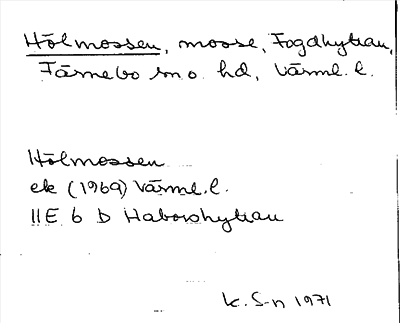 Hölmossen, mosse, Fogdhyttan,
Färnebo sn o. hd, Värml. l.
Hölmossen
ek (1969) Värml. l.
11E 6 b Haborshyttan
K. S-n 1971